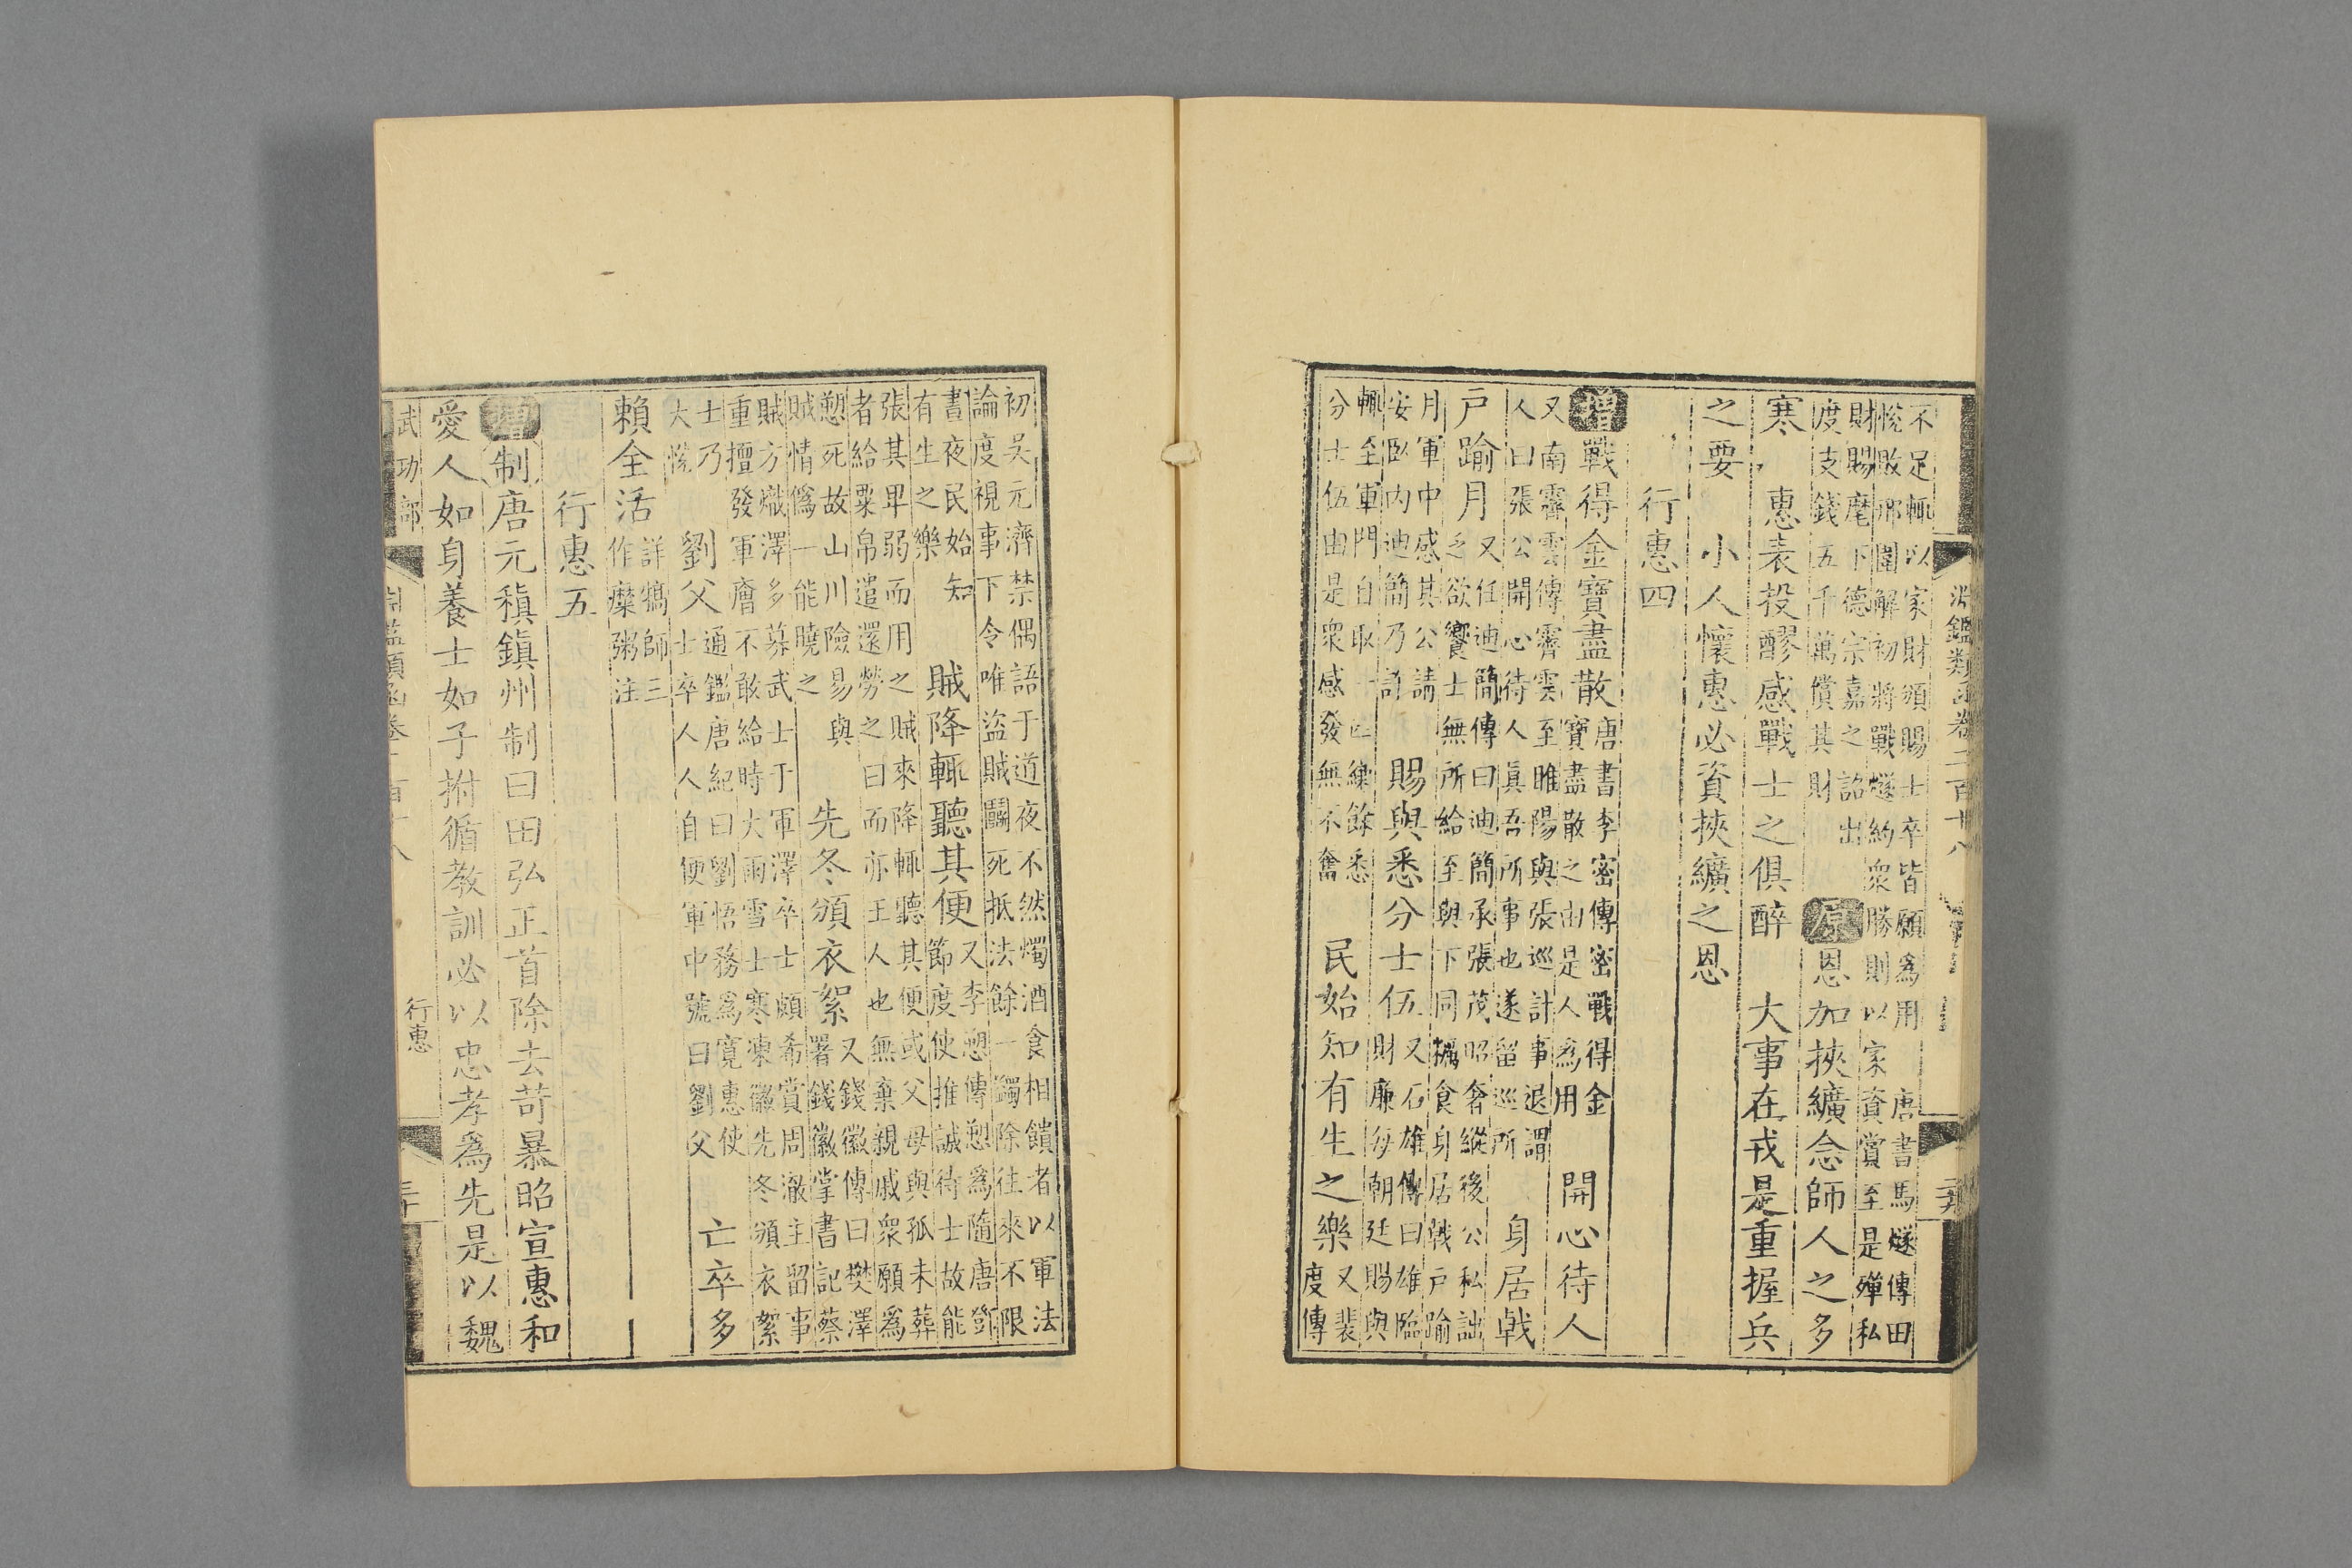 淵鑑類函卷二百十八
不足輒以家財頒賜士卒皆願爲用　唐書馬燧傳田
悅敗邢圍解初將戰燧約衆勝則以家資賞至是殫私
財賜麾下德宗嘉之詔出
度支錢五千萬償其財
原恩加挾纊念師人之多
寒　惠表投醪感戰士之俱醉　大事在戎是重握兵
之要　小人懷惠必資挾纊之恩
行惠四
增戰得金寶盡散
唐書李密傳密戰得金
寶盡散之由是人爲用
開心待人
又南霽雲傳霽雲至睢陽與張巡計事退謂
人曰張公開心待人眞吾所事也遂留巡所
身居戟
戶踰月
又任迪簡傳曰迪簡承張茂昭奢縱後公私詘
乏欲饗士無所給至與下同糲食身居戟戶踰
月軍中感其公請
安臥內迪簡乃許
賜與悉分士伍
又石雄傳曰雄臨
財廉每朝廷賜與
輒至軍門自取一匹縑餘悉
分士伍由是衆感發無不奮
民始知有生之樂
又裴
度傳
初吳元濟禁偶語于道夜不然燭酒食相饋者以軍法
論度視事下令唯盜賊鬬死抵法餘一蠲除往來不限
晝夜民始知
有生之樂
賊降輒聽其便
又李愬傳愬爲隨唐鄧
節度使推誠待士故能
張其卑弱而用之賊來降輒聽其便或父母與孤未葬
者給粟帛遣還勞之曰而亦王人也無棄親戚衆願爲
愬死故山川險易與
賊情僞一能曉之
先冬頒衣絮
又錢徽傳曰樊澤
署錢徽掌書記蔡
賊方熾澤多募武士于軍澤卒士頗希賞周澈主留事
重擅發軍廥不敢給時大雨雪士寒凍徽先冬頒衣絮
士乃
大悅
劉父
通鑑唐紀曰劉悟務爲寬惠使
士卒人人自便軍中號曰劉父
亡卒多
賴全活
詳犒師三
作糜粥注
行惠五
增制唐元稹鎭州制曰田弘正首除去苛暴昭宣惠和
愛人如身養士如子拊循教訓必以忠孝爲先是以魏
武功部
行惠
三十